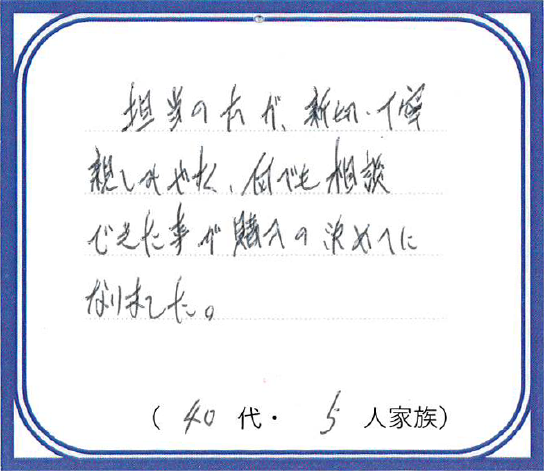 担当の方が、親切・丁寧
親しみやすく、何でも相談
できた事が購入の決めてに
なりました。
( 40 代・ 5 人家族)